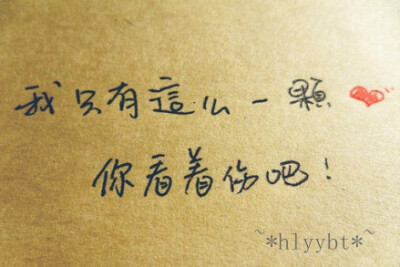 我只有這么一顆❤
你看着伤吧！
~*hlyybt*~